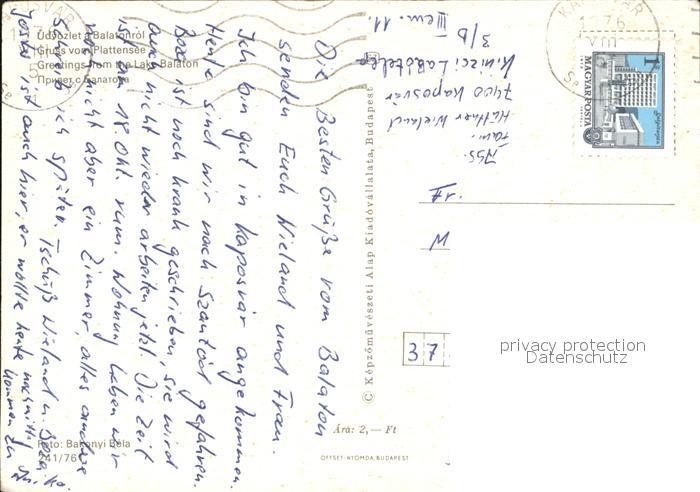 Üdvözlet a Balatonról
Gruss vom Plattensee
Greetings from the Lake Balaton
Привет с Балатона
Die Besten Grüße vom Balaton
senden Euch Wieland und Frau.
Ich bin gut in Kaposvár angekommen.
Heute sind wir nach Szántód gefahren.
ist noch krank geschrieben, sie wird
auch nicht wieder arbeiten jetzt. Die Zeit
ist am 18 Okt. rum. Wohnung haben wir
noch nicht aber ein Zimmer, alles andere
schreib ich später. Tschüß Wieland u.
ist auch hier, er wollte heute nachmittag
kommen zu
Foto: Bakonyi Béla
241/76
© Képzőművészeti Alap Kiadóvállalata, Budapest
Ára: 2,— Ft
OFFSET-NYOMDA, BUDAPEST
Abs.
Fam.
Hüttner Wieland
7400 Kaposvár
3/b
III em. 11.
W
37
KAPOSVÁR
MAGYAR POSTA
1 Ft
privacy protection
Datenschutz